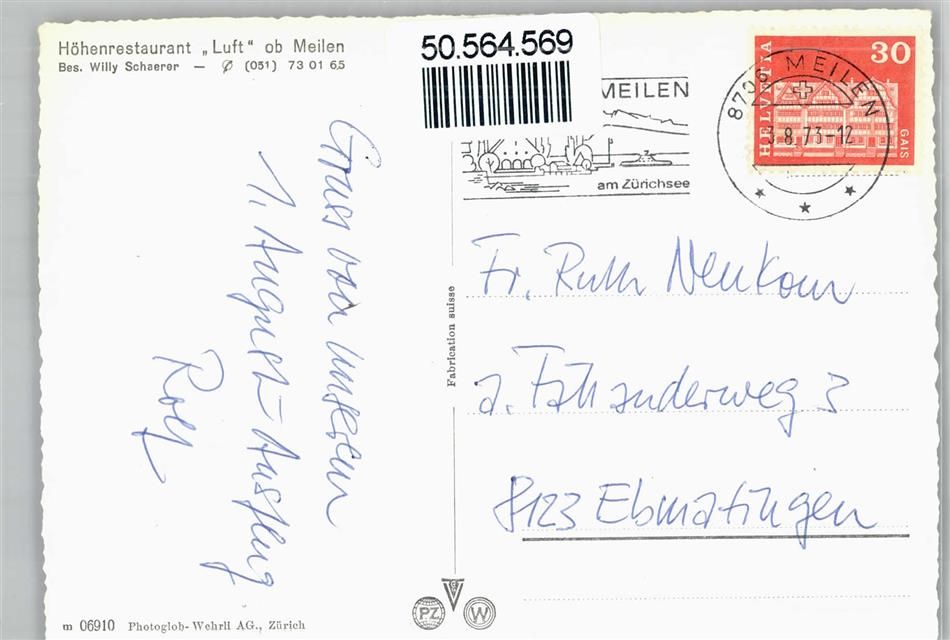 Höhenrestaurant „Luft“ ob Meilen
Bes. Willy Schaerer — ✆ (051) 73 01 65
50.564.569
MEILEN
am Zürichsee
8706 MEILEN
8.73-12
HELVETIA
30
GAIS
Gruss von unserem
1. August-Ausflug
Rolf
Fabrication suisse
Fr. Ruth Neukom
8123 Ebmatingen
PZ
W
m 06910 Photoglob-Wehrli AG., Zürich